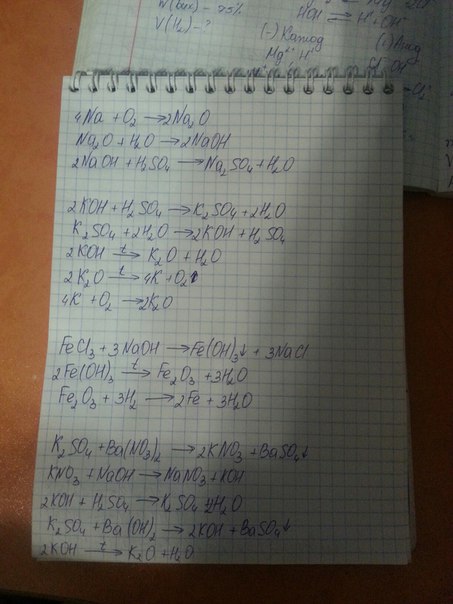 W(вых) - 75%
V(H₂) - ?
HOH ⇄ H⁺ + OH⁻
(-) Катод
(+) Анод
Mg²⁺ H⁺
Cl⁻ OH⁻
4Na + O₂ → 2Na₂O
Na₂O + H₂O → 2NaOH
2NaOH + H₂SO₄ → Na₂SO₄ + H₂O
2KOH + H₂SO₄ → K₂SO₄ + 2H₂O
K₂SO₄ + 2H₂O → 2KOH + H₂SO₄
2KOH →ᵗ K₂O + H₂O
2K₂O →ᵗ 4K + O₂↑
4K + O₂ → 2K₂O
FeCl₃ + 3NaOH → Fe(OH)₃↓ + 3NaCl
2Fe(OH)₃ →ᵗ Fe₂O₃ + 3H₂O
Fe₂O₃ + 3H₂ → 2Fe + 3H₂O
K₂SO₄ + Ba(NO₃)₂ → 2KNO₃ + BaSO₄↓
KNO₃ + NaOH → NaNO₃ + KOH
2KOH + H₂SO₄ → K₂SO₄ + 2H₂O
K₂SO₄ + Ba(OH)₂ → 2KOH + BaSO₄↓
2KOH →ᵗ K₂O + H₂O